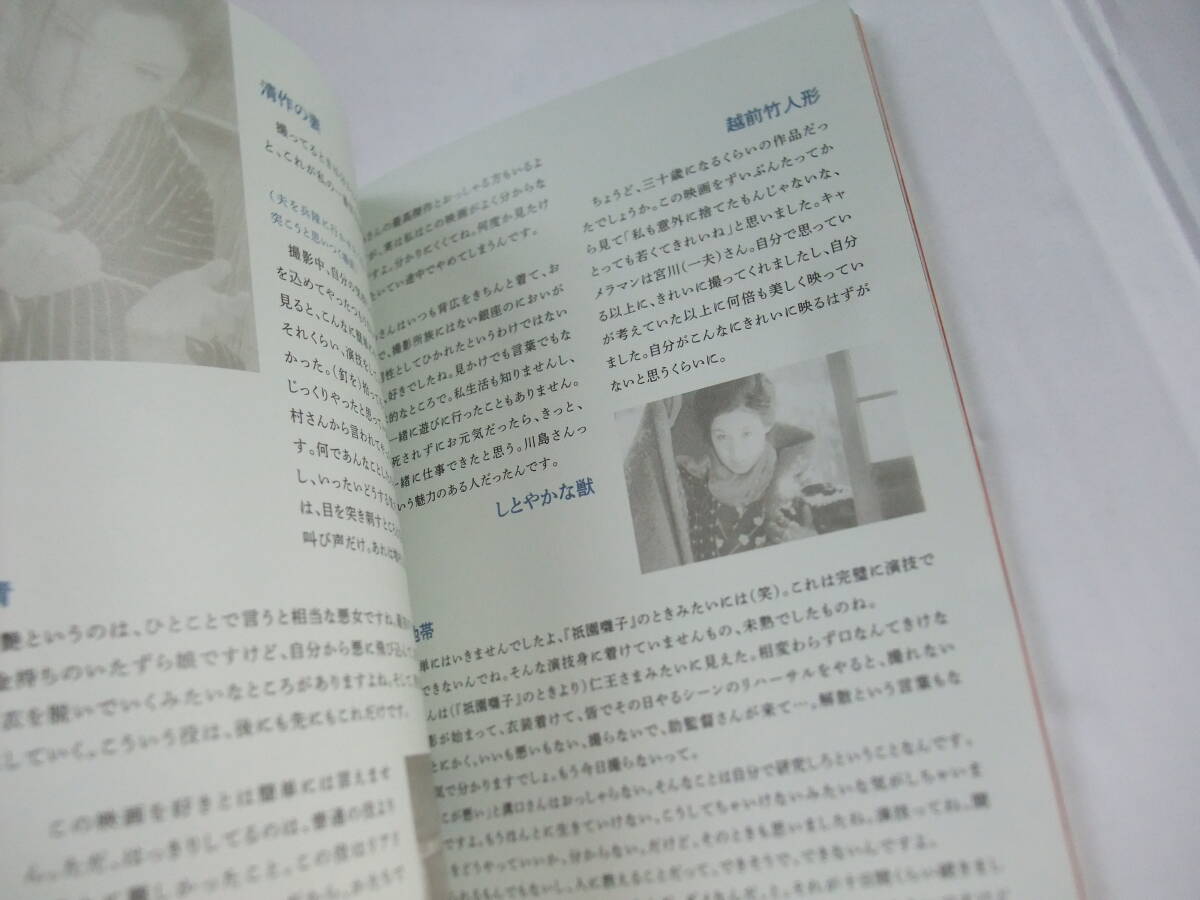 清作の妻
撮ってると
と、これが私の一番
(夫を兵隊に行かせ
突こうと思いつく
撮影中、自分の
を込めてやったつもり
見ると、こんなに簡単
それくらい、演技をして
かった。(釘を)拾って
じっくりやったと思って
村さんから言われて
す。何であんなことし
し、いったいどうする
は、目を突き刺すところ
叫び声だけ。あれは
青
艶というのは、ひとことで言うと相当な悪女ですね。
金持ちのいたずら娘ですけど、自分から悪に飛び込んで
衣を脱いでいくみたいなところがありますよね。そして
していく。こういう役は、後にも先にもこれだけです。
この映画を好きとは簡単には言えませ
ん。ただ、はっきりしてるのは、普通の役より
難しかったこと。この役はリアリ
さんの最高傑作とおっしゃる方もいるよ
が、実は私はこの映画がよく分からな
すよ。分かりにくくてね。何度か見たけ
たいてい途中でやめてしまうんです。
さんはいつも背広をきちんと着て、お
で、撮影所族にはない銀座のにおいが
男性としてひかれたというわけではない
、好きでしたね。見かけでも言葉でもな
的なところで。私生活も知りませんし、
一緒に遊びに行ったこともありません。
死されずにお元気だったら、きっと、
一緒に仕事できたと思う。川島さんっ
いう魅力のある人だったんです。
しとやかな獣
越前竹人形
ちょうど、三十歳になるくらいの作品だっ
たでしょうか。この映画をずいぶんたってか
ら見て「私も意外に捨てたもんじゃないな、
とっても若くてきれいね」と思いました。キャ
メラマンは宮川(一夫)さん。自分で思ってい
る以上に、きれいに撮ってくれましたし、自分
が考えていた以上に何倍も美しく映ってい
ました。自分がこんなにきれいに映るはずが
ないと思うくらいに。
地帯
単にはいきませんでしたよ、『祇園囃子』のときみたいには(笑)。これは完璧に演技で
できないんでね。そんな演技身に着けていませんもの、未熟でしたものね。
んは(『祇園囃子』のときより)仁王さまみたいに見えた。相変わらず口なんてきけな
影が始まって、衣装着けて、皆でその日やるシーンのリハーサルをやると、撮れない
とにかく、いいも悪いもない、撮らないで、助監督さんが来て…。解散という言葉もな
気で分かりますでしょ。もう今日撮らないって。
こが悪い」と溝口さんはおっしゃらない。そんなことは自分で研究しろということなんです。
ですよ。もうほんとに生きていけない。こうしてちゃいけないみたいな気がしちゃいま
をどうやっていいか、分からない。だけど、そのときも思いましたね。演技ってね、聞
られるもんでもないし、人に教えることだって、できそうで、できないんですよ。